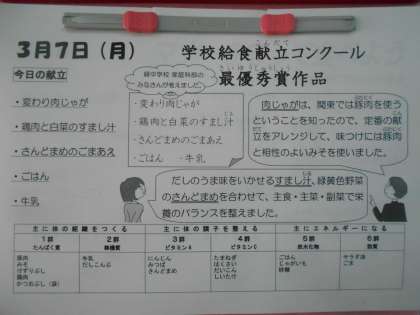 3月7日（月）
学校給食献立コンクール
最優秀賞作品
今日の献立
・変わり肉じゃが
・鶏肉と白菜のすまし汁
・さんどまめのごまあえ
・ごはん
・牛乳
緑中学校 家庭科部の
みなさんが考えました。
・変わり肉じゃが
・鶏肉と白菜のすまし汁
・さんどまめのごまあえ
・ごはん ・牛乳
肉じゃがは、関東では豚肉を使う
ということを知ったので、定番の献
立をアレンジして、味つけには豚肉
と相性のよいみそを使いました。
だしのうま味をいかせるすまし汁、緑黄色野菜
のさんどまめを合わせて、主食・主菜・副菜で栄
養のバランスを整えました。
主に体の組織をつくる 主に体の調子を整える 主にエネルギーになる
1群 2群 3群 4群 5群 6群
たんぱく質 無機質 ビタミンA ビタミンC 炭水化物 脂質
豚肉 牛乳 にんじん たまねぎ ごはん サラダ油
みそ だしこんぶ みつば はくさい じゃがいも ごま
けずりぶし さんどまめ だいこん 砂糖
鶏肉 しいたけ
かつおぶし（袋）